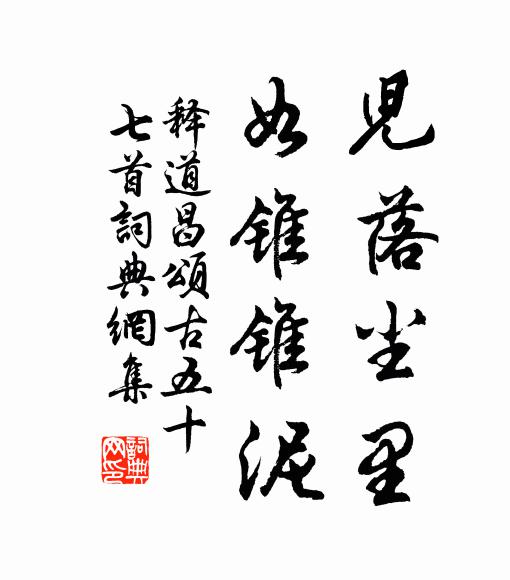 児落尘里
如锥锥泥
释道昌頌古五十
七首詞典網集
詞典网印